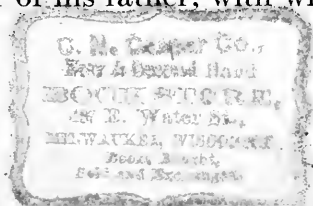 of his father, with
C. N. Caspar Co.,
New & Second Hand
BOOK STORE,
E. Water St.,
MILWAUKEE, WISCONSIN
Books Bought,
Sold and Exchanged.